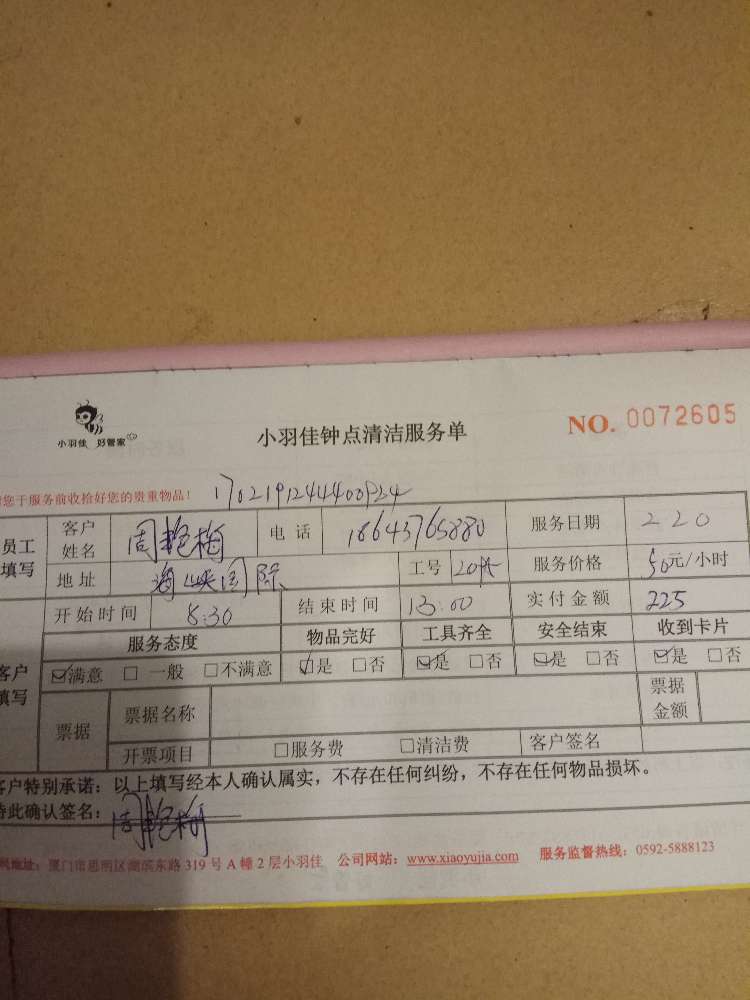 小羽佳 好管家
小羽佳钟点清洁服务单
NO. 0072605
您于服务前收拾好您的贵重物品！
员工填写 客户姓名 周艳梅 电话 18643765880 服务日期 220
地址 海峡国际 工号 服务价格 50元/小时
开始时间 8:30 结束时间 13:00 实付金额 225
客户填写 服务态度 物品完好 工具齐全 安全结束 收到卡片
☑满意 □一般 □不满意 ☑是 □否 ☑是 □否 ☑是 □否 ☑是 □否
票据 票据名称 票据金额
开票项目 □服务费 □清洁费 客户签名
客户特别承诺：以上填写经本人确认属实，不存在任何纠纷，不存在任何物品损坏。
特此确认签名： 周艳梅
地址：厦门市思明区湖滨东路 319 号 A 幢 2 层小羽佳 公司网站：www.xiaoyujia.com 服务监督热线：0592-5888123